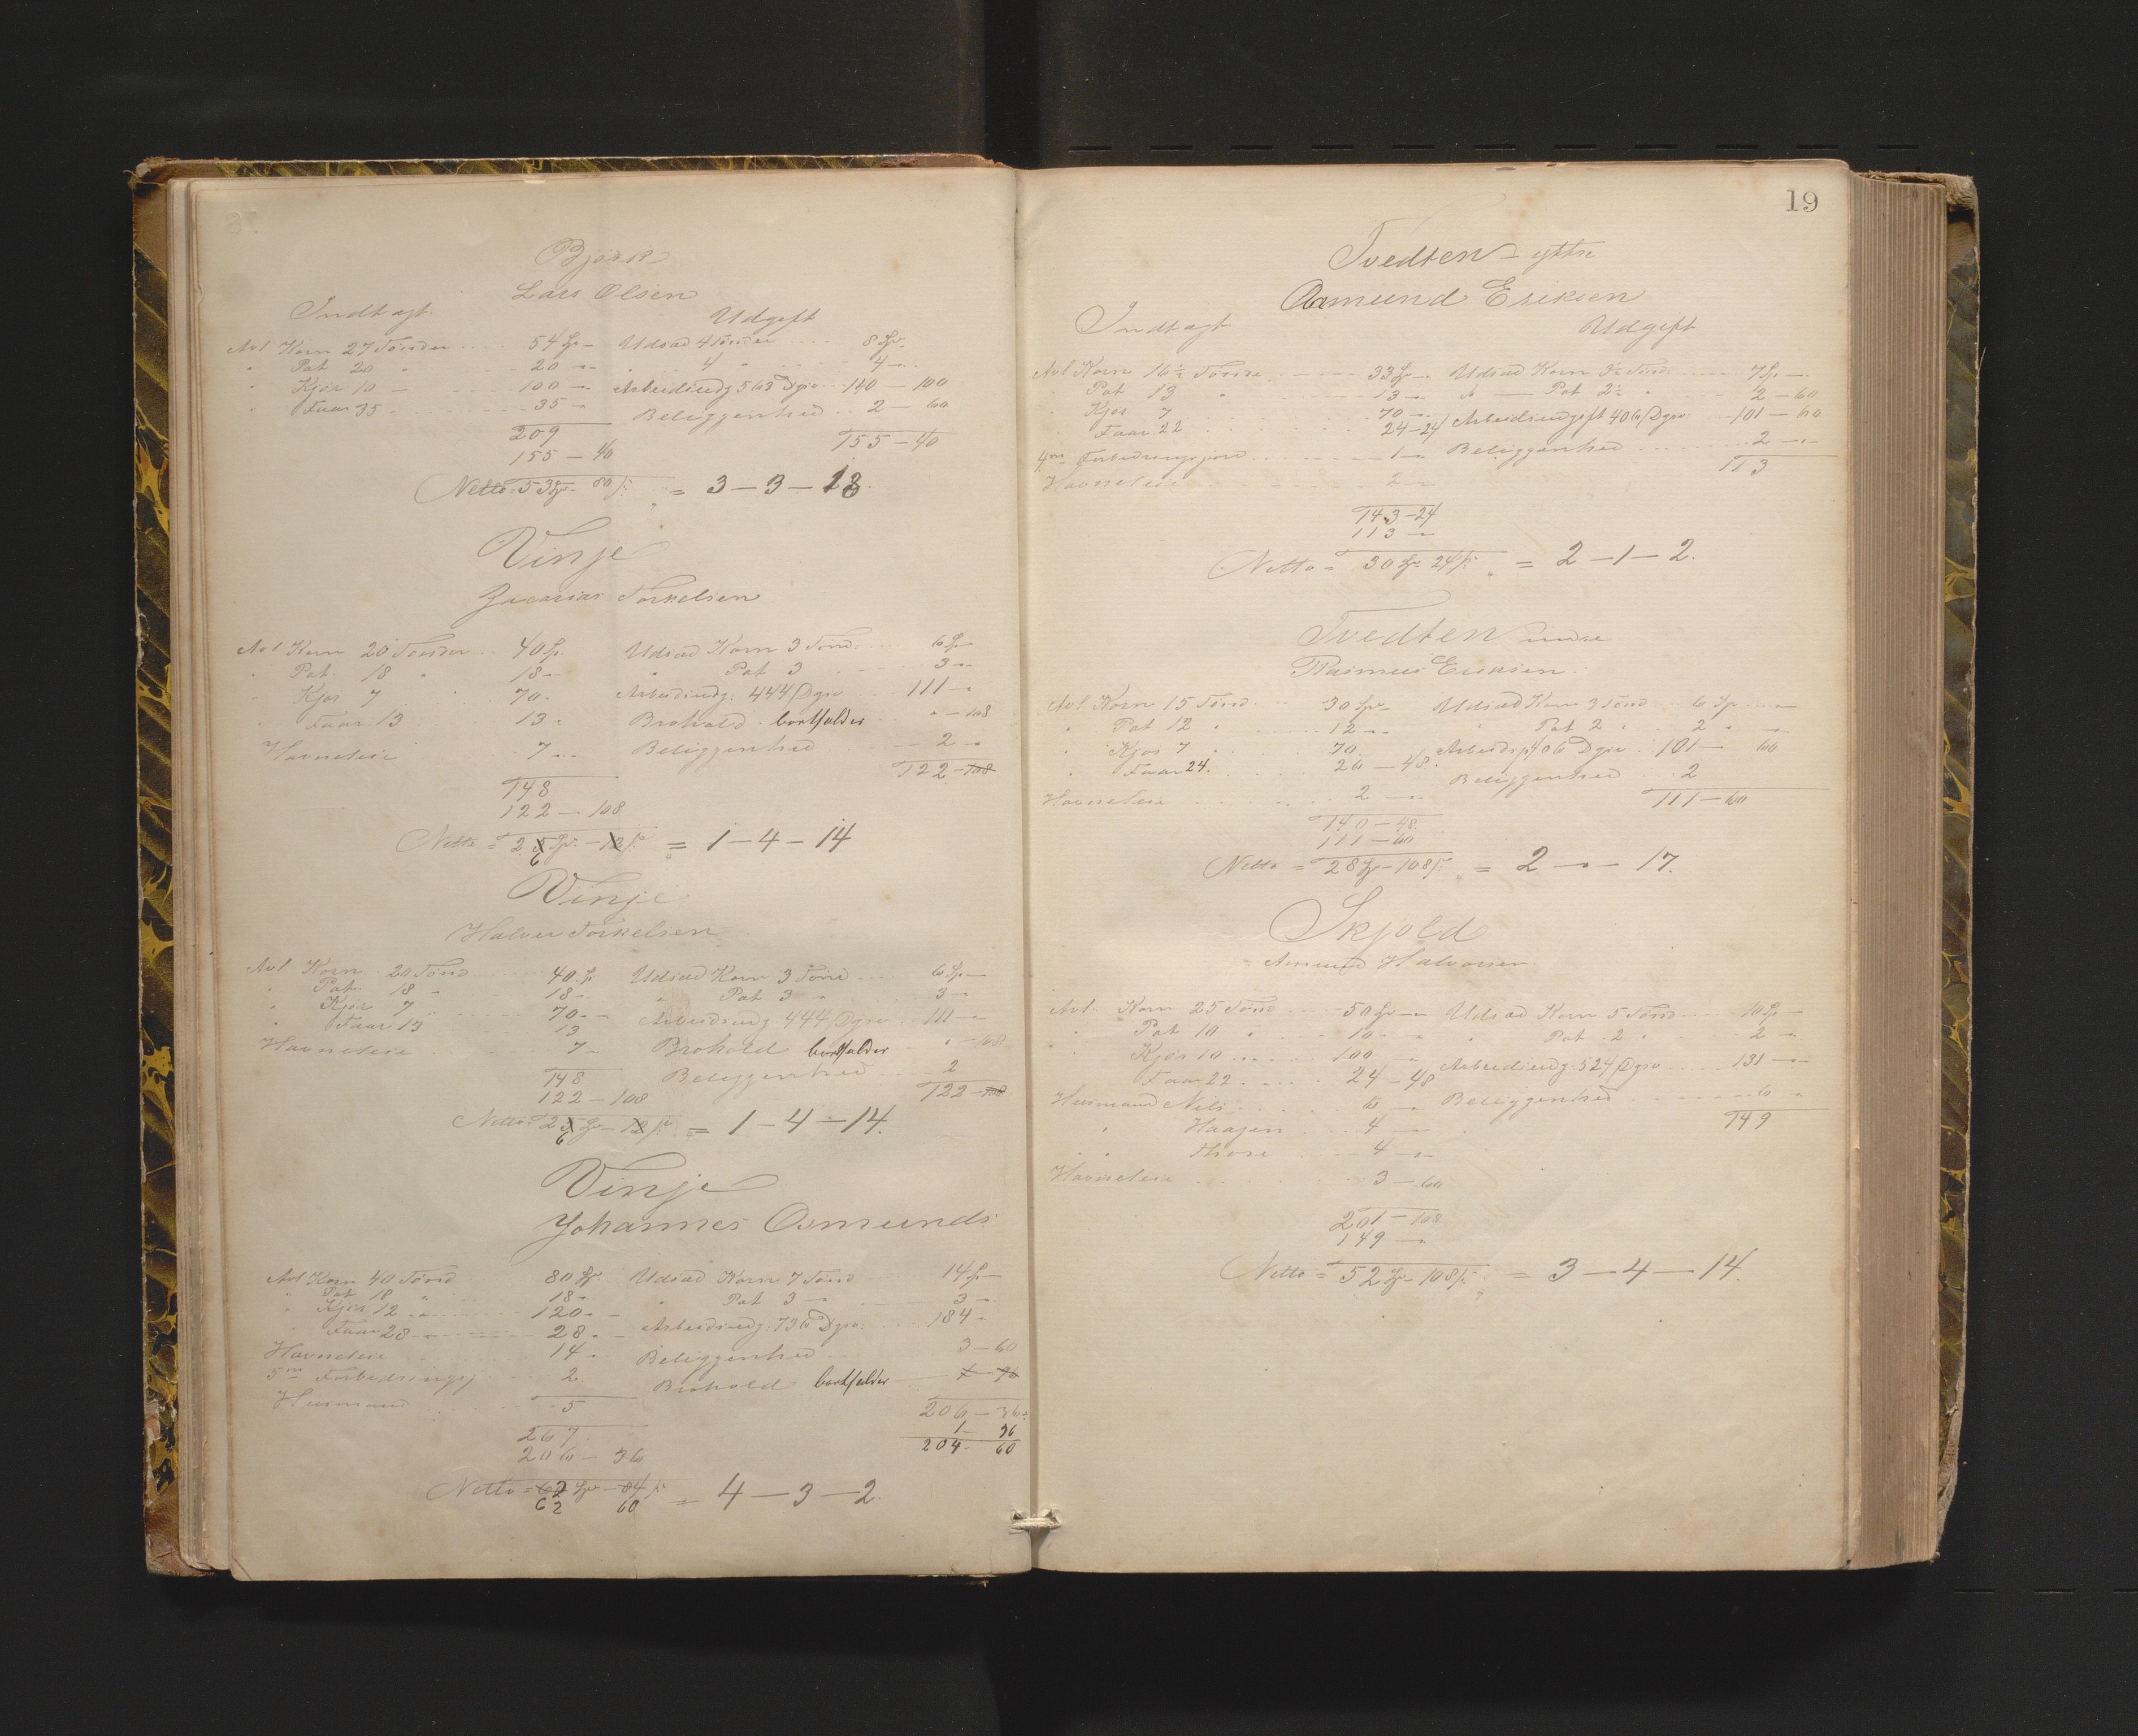 Bjørk
Lars Olsen
Indtægt. Udgift
Avl Korn 27 Tønder 54 Sp – Udsæd 4 Tønder 8 Sp –
" Pot 20 " 20 – " 4 " 4 –
" Kjør 10 – 100 – Arbeidsudg 563 Dgv 140 – 100
" Faar 35 35 – Beliggenhed 2 – 60
209 155 – 40
155 – 40
Netto = 53 Sp – 80 ß = 3 – 3 – 18.
Vinje
Zacarias Torkelsen
Avl Korn 20 Tønder 40 Sp. Udsæd Korn 3 Tønd. 6 Sp –
" Pot 18 " 18 – " Pot 3 3 –
" Kjør 7 70 – Arbeidsudg: 444 Dgv 111 –
" Faar 13 13 – Brohold bortfalder " – 108
Havneleie 7 – Beliggenhed 2 –
148 122 – 108
122 – 108
Netto = 25 Sp – 12 ß = 1 – 4 – 14
6
Vinje
Halvor Torkelsen
Avl Korn 20 Tønd 40 Sp Udsæd Korn 3 Tønd 6 Sp –
" Pot 18 " 18 – " Pot 3 " 3 –
" Kjør 7 70 – Arbeidsudg 444 Dgv 111 –
" Faar 13 13 Brohold bortfalder " – 108
Havneleie 7 – Beliggenhed 2
148 122 – 108
122 – 108
Netto = 25 Sp – 12 ß = 1 – 4 – 14.
6
Vinje
Johannes Osmunds.
Avl Korn 40 Tønd 80 Sp Udsæd Korn 7 Tønd 14 Sp –
" Pot 18 " 18 – " Pot 3 – 3 –
" Kjør 12 120 – Arbeidsudg: 736 Dgv: 184 –
" Faar 28 28 – Beliggenhed 3 – 60
Havneleie 14 – Brohold bortfalder 1 – 96
5 m Forbedringsj 2.
Husmand 5 206 – 36
267 1 – 96
206 – 36 204 – 60
Netto = 62 Sp – 84 ß = 4 – 3 – 2
62 60
19
Tvedten – yttre
Osmund Eriksen
Indtægt Udgift
Avl Korn 16½ Tønde 33 Sp – Udsæd Korn 3½ Tønd. 7 Sp –
" Pot 13 " 13 – " – Pot 2½ 2 – 60
" Kjør 7 70 – Arbeidsudgift 406 Dgv 101 – 60
" Faar 22 24 – 24 Beliggenhed 2 –
4 m Forbedringsjord 1 – 113
Havneleie 2 –
143 – 24
113 –
Netto = 30 Sp 24 ß = 2 – 1 – 2.
Tvedten indre
Rasmus Eriksen.
Avl Korn 15 Tønd 30 Sp – Udsæd Korn 3 Tønd 6 Sp –
" Pot 12 " 12 – " Pot 2 " 2 –
" Kjør 7 " 70 Arbeidsg 406 Dgv. 101 – 60
" Faar 24. 26 – 48. Beliggenhed 2
Havneleie 2 – 111 – 60
140 – 48
111 – 60
Netto = 28 Sp – 108 ß = 2 – " – 17.
Skjold
Amund Halvorsen
Avl. Korn 25 Tønd 50 Sp – Udsæd Korn 5 Tønd 10 Sp –
" Pot 10 " 10 – " Pot 2 " 2 "
" Kjør 10 100 " Arbeidsudg. 524 Dgv 131 –
" Faar 22 24 – 48 Beliggenhed 6 "
Husmand Nils 6 – 149
" Haagen 4 –
" " Thore 4 –
Havneleie 3 – 60
201 – 108
149 –
Netto = 52 Sp – 108 ß = 3 – 4 – 14.